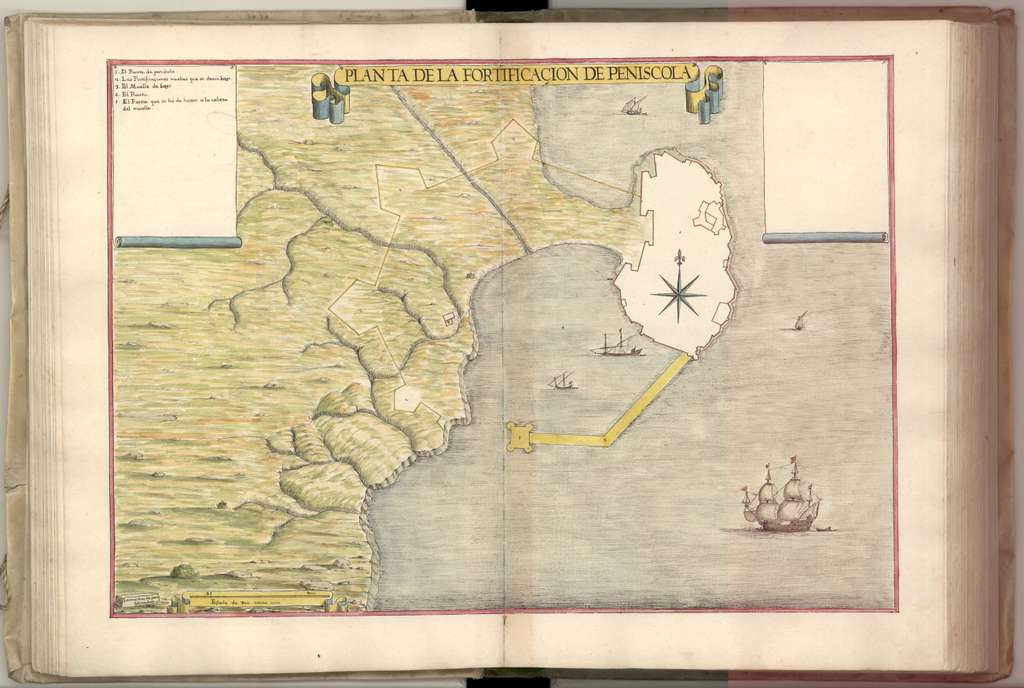 PLANTA DE LA FORTIFICAÇION DE PENISCOLA
1. El Puerto de peniscola.
2. Las Fortificaçiones nuebas que se deven haçer.
3. El Muelle de haçer
4. El Puerto.
5. El Fuerte que se ha de haçer a la cabeza
del muelle.